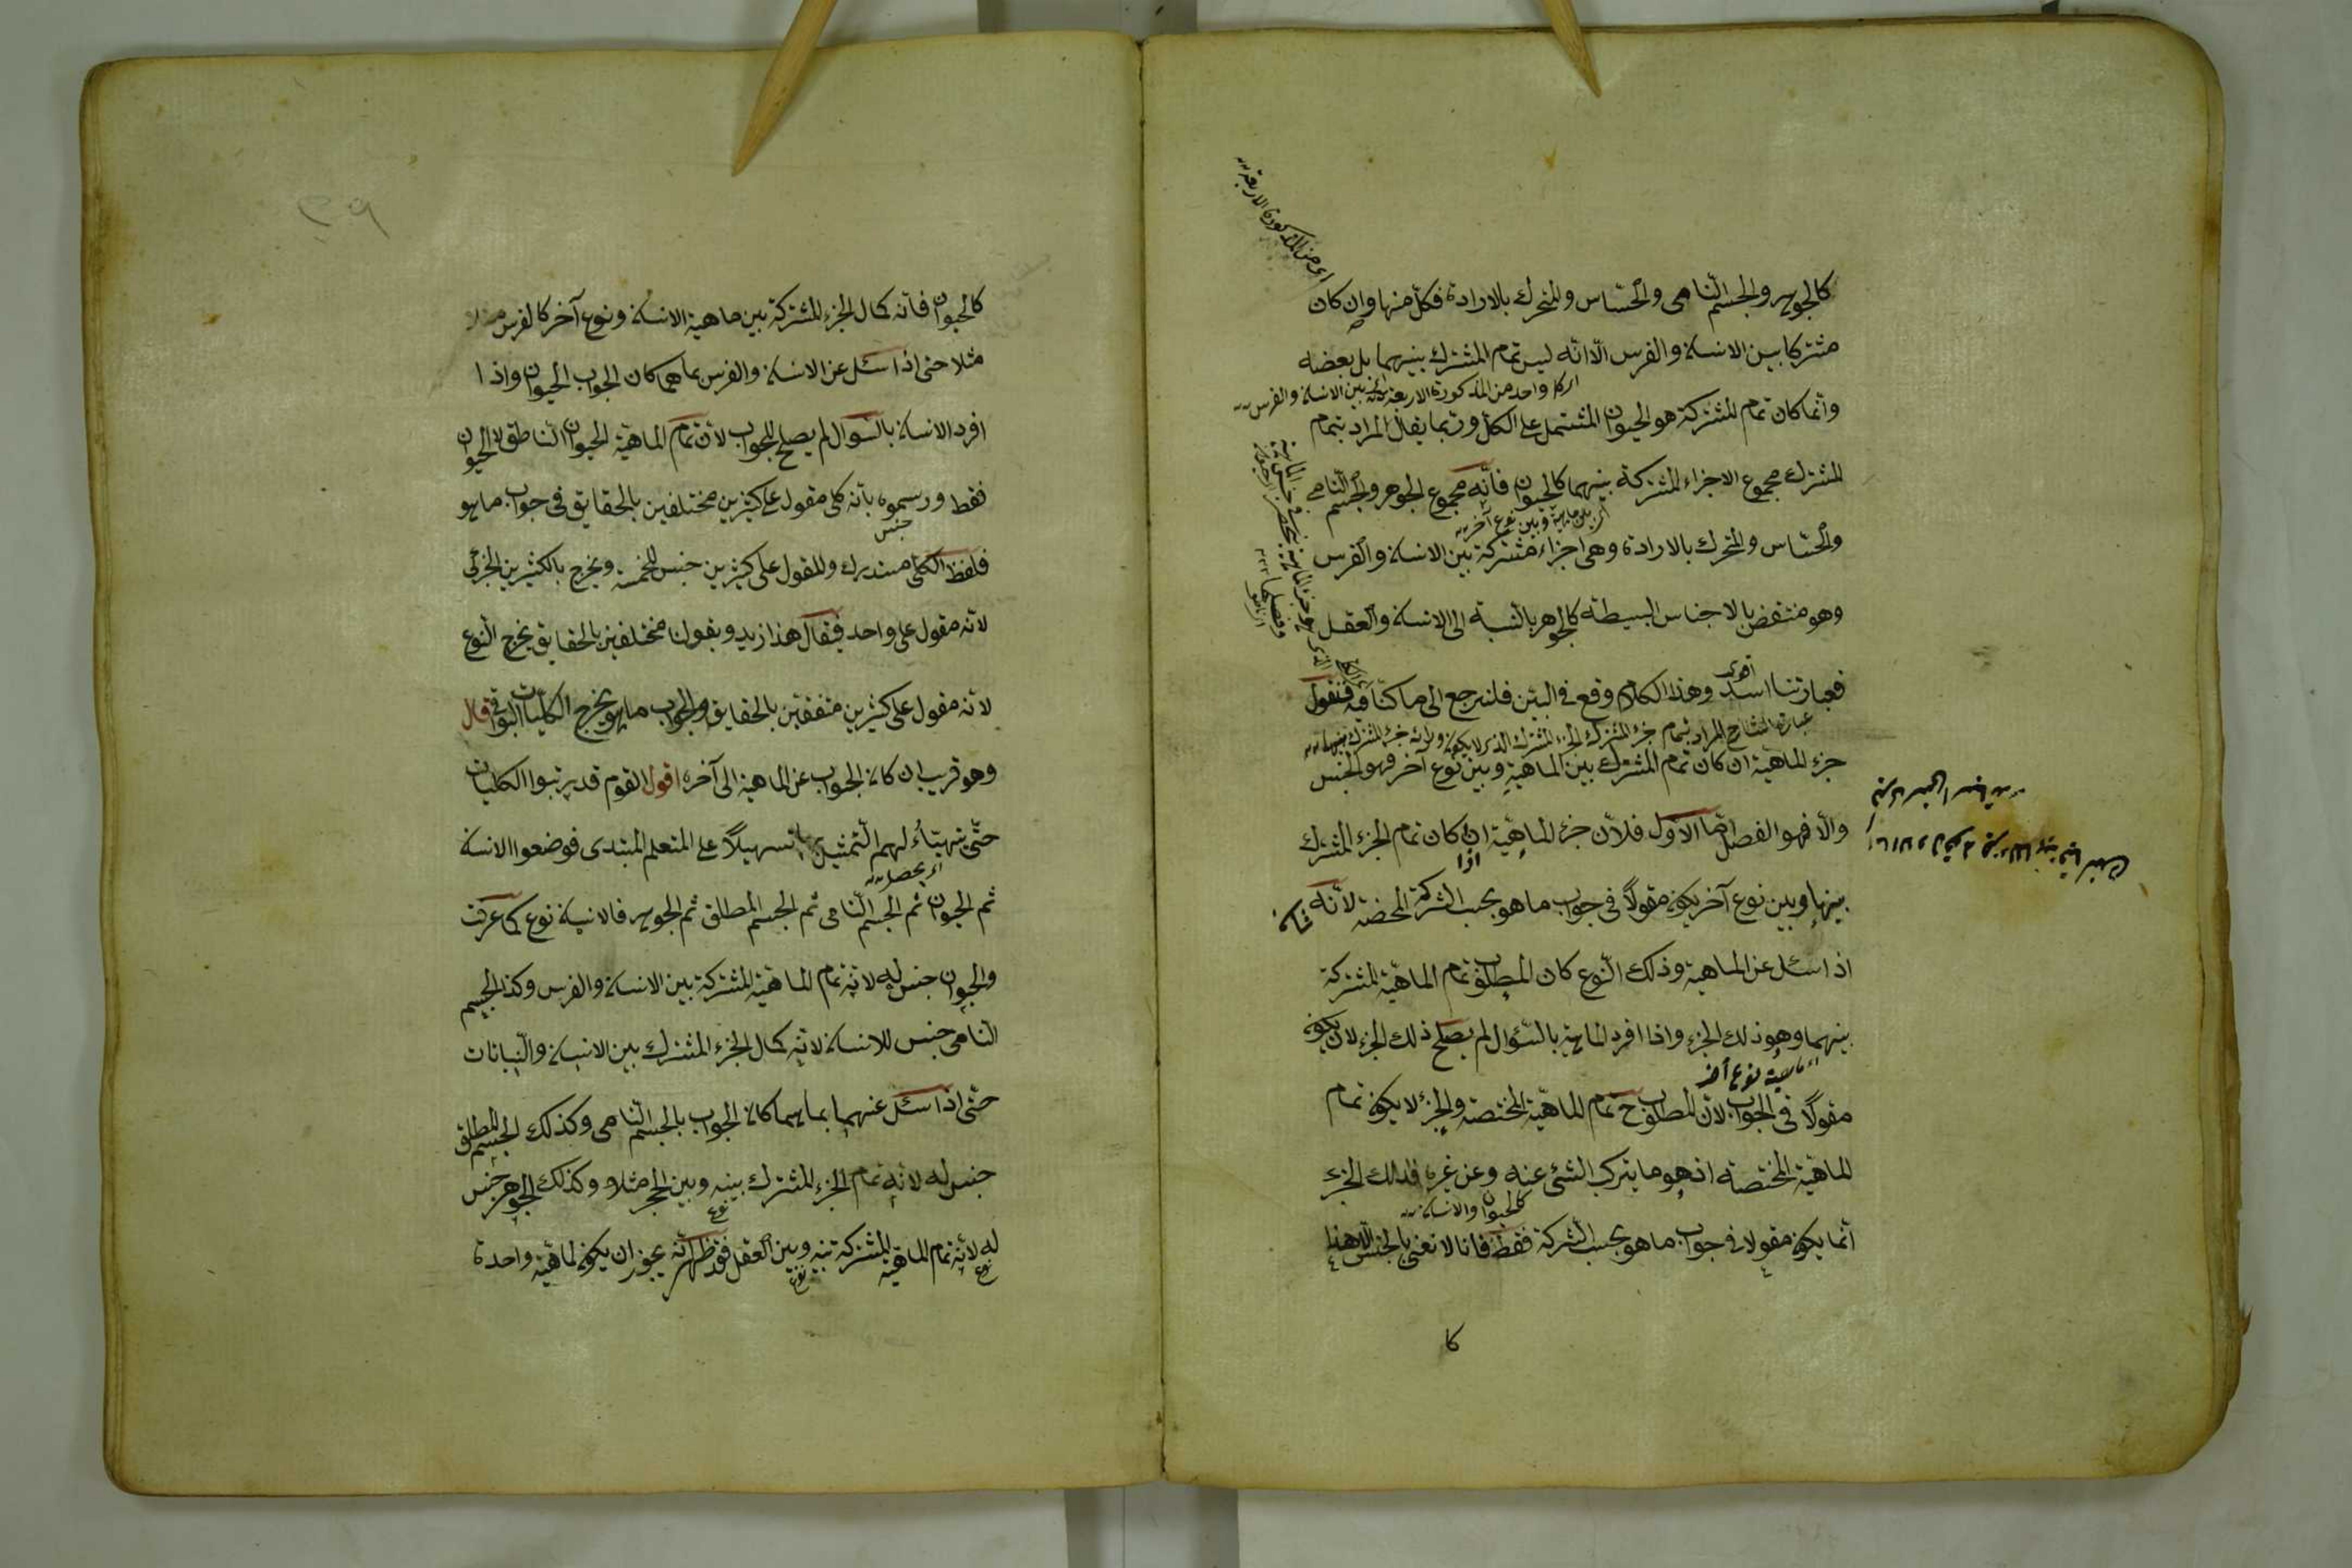 كالجوهر والجسم النامى والحساس والمتحرك بالارادة فكل منها وان كان
مشتركا بين الانسان والفرس الا انه ليس تمام المشترك بينهما بل بعضه
وانما كان تمام المشتركة هو الحيوان المشتمل على الكل وربما يقال المراد بتمام
المشترك مجموع الاجزاء المشتركة بينهما كالحيوان فانه مجموع الجوهر والجسم النامى
والحساس والمتحرك بالارادة وهى اجزاء مشتركة بين الانسان والفرس
وهو منتقض بالاجناس البسيطة كالجوهر بالنسبة الى الانسان والعقل
فعبارتنا اسد وهذا الكلام وقع فى البين فلنرجع الى ما كنا فيه فنقول
جزء الماهية ان كان تمام المشترك بين الماهية وبين نوع آخر فهو الجنس
والا فهو الفصل اما الاول فلان جزء الماهية ان كان تمام الجزء المشترك
بينها وبين نوع آخر يكون مقولا فى جواب ما هو بحسب الشركة المحضة لانه
اذا سئل عن الماهية وذلك النوع كان المطلوب تمام الماهية المشتركة
بينهما وهو ذلك الجزء واذا افرد الماهية بالسؤال لم يصلح ذلك الجزء لان يكون
مقولا فى الجواب لان المطلوب ح تمام الماهية المختصة والجزء لا يكون تمام
الماهية المختصة اذ هو ما يتركب الشئ عنه وعن غيره فذلك الجزء
انما يكون مقولا فى جواب ما هو بحسب الشركة فقط فانا لا نعنى بالجنس الا هذا
كا
اى من المذكورة الاربعة
اى كل واحد من المذكورة الاربعة بين الانسان والفرس
اى بين ماهية وبين نوع آخر
اى ماهية نوع آخر
كالحيوان والانسان
٣٩
كالحيوان فانه كمال الجزء المشتركة بين ماهية الانسان ونوع آخر كالفرس مثلا
مثلا حتى اذا سئل عن الانسان والفرس بما هما كان الجواب الحيوان واذا
افرد الانسان بالسوال لم يصلح للجواب لان تمام الماهية الحيوان الناطق لا الحيوان
فقط ورسموه بانه كلى مقول على كثيرين مختلفين بالحقايق فى جواب ما هو
جنس
فلفظ الكلى مستدرك والمقول على كثيرين جنس للخمسة ويخرج بالكثيرين الجزئى
لانه مقول على واحد فيقال هذا زيد وبقولنا مختلفين بالحقايق يخرج النوع
لانه مقول على كثيرين متفقين بالحقايق والجواب ما هو يخرج الكليات البواقى قال
وهو قريب ان كان الجواب عن الماهية الى آخره اقول القوم قد رتبوا الكليات
حتى يتهيئا لهم التمثيل بها تسهيلا على المتعلم المبتدى فوضعوا الانسان
اى يحصل
ثم الحيوان ثم الجسم النامى ثم الجسم المطلق ثم الجوهر فالانسان نوع كما عرفت
والحيوان جنس له لانه تمام الماهية المشتركة بين الانسان والفرس وكذا الجسم
النامى جنس للانسان لانه كمال الجزء المشترك بين الانسان والنباتات
حتى اذا سئل عنهما بما هما كان الجواب بالجسم النامى وكذلك الجسم المطلق
جنس له لانه تمام الجزء المشترك بينه وبين الحجر مثلا وكذلك الجوهر جنس
له لانه تمام الماهية المشتركة بينه وبين العقل فقد ظهر انه يجوز ان يكون لماهية واحدة